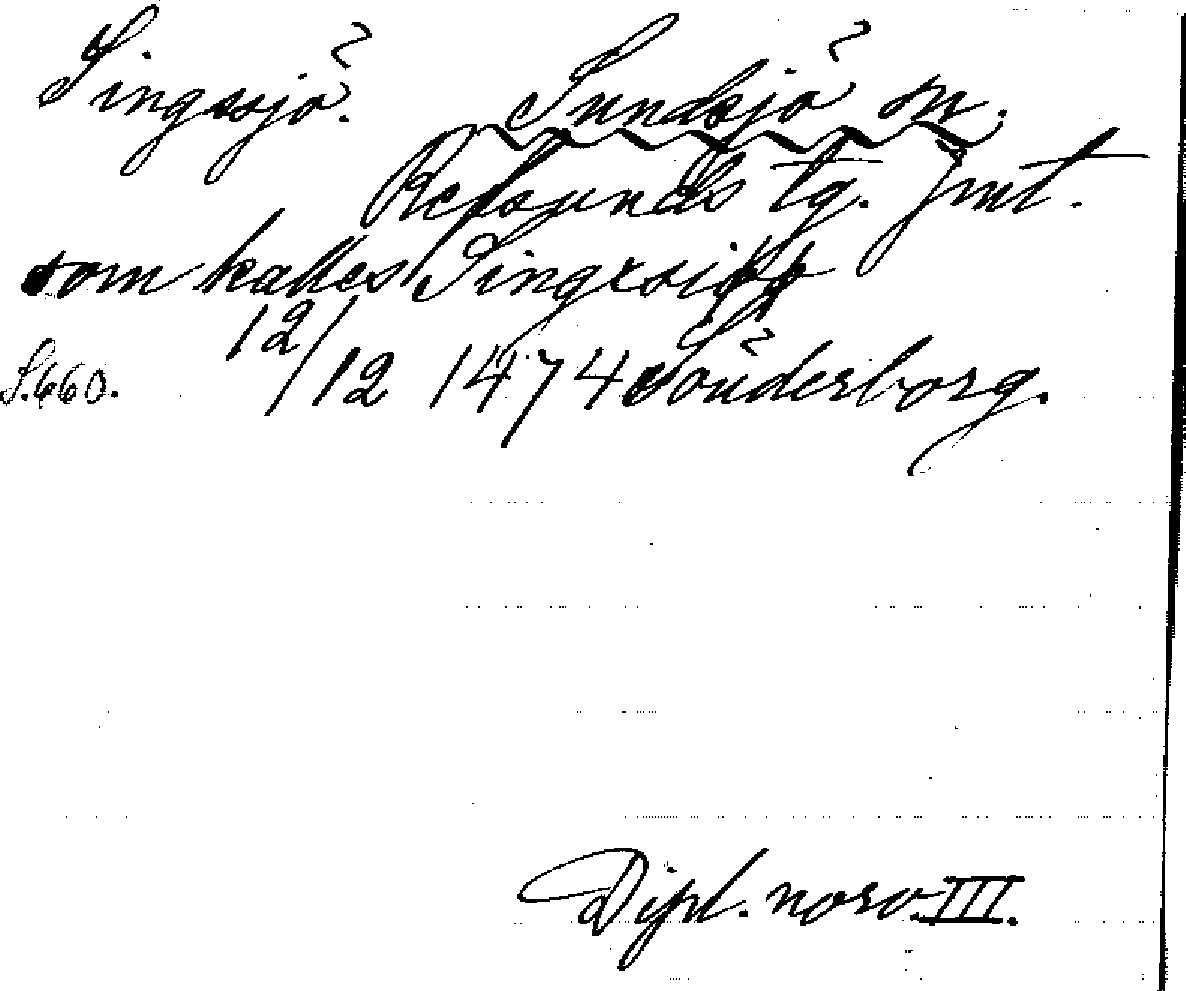 Singssjö. Sundsjö sn.
Refsunds tg. Jmt.
som kalles
S.660. 12/12 1474 Sönderborg.
Dipl. norv. III.